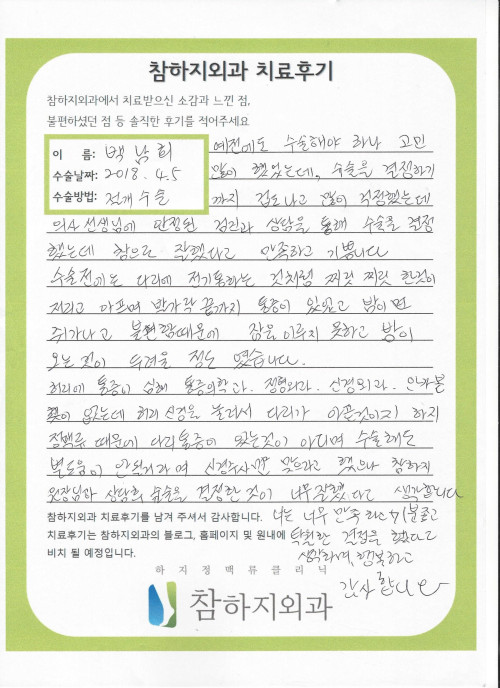 참하지외과 치료후기
참하지외과에서 치료받으신 소감과 느낀 점,
불편하셨던 점 등 솔직한 후기를 적어주세요
이 름: 백남희
수술날짜: 2018. 4.5
수술방법: 전개수술
예전에도 수술해야 하나 고민
많이 했었는데, 수술을 결정하기
까지 겁도나고 많이 걱정했는데
의사선생님에 안정된 검진과 상담을 통해 수술을 결정
했는데 참으로 잘했다고 만족하고 기쁩니다
수술전에는 다리에 전기통하는 것처럼 찌릿 찌릿 한것이
저리고 아프며 발가락 끝까지 통증이 있었고 밤이면
쥐가나고 불편함때문에 잠을 이루지 못하고 밤이
오는것이 두려울 정도 였습니다.
허리에 통증이 심해 통증의학과. 정형외과. 신경외과. 안가본
곳이 없는데 허리 신경을 눌러서 다리가 아픈것이지 하지
정맥류 때문에 다리통증이 있는것이 아니며 수술해도
별도움이 안될거라며 신경주사 맞으라고 했으나 참하지
원장님과 상담희 수술을 결정한 것이 너무 잘했다고 생각합니다
참하지외과 치료후기를 남겨 주셔서 감사합니다. 나는 너무 만족하고 기분좋고
치료후기는 참하지외과의 블로그, 홈페이지 및 원내에 탁월한 결정을 했다고
비치 될 예정입니다. 생각하며, 행복하고
감사합니다
하지정맥류클리닉
참하지외과